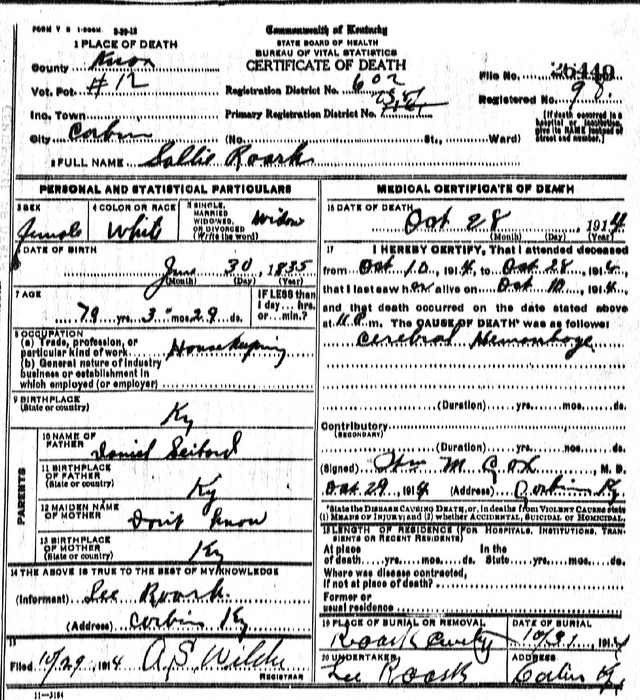 FORM V S 1-500M 3-29-12
Commonwealth of Kentucky
STATE BOARD OF HEALTH
BUREAU OF VITAL STATISTICS
CERTIFICATE OF DEATH
1 PLACE OF DEATH
County Knox
Vot. Pct. #12
Registration District No. 602
File No. 26440
Inc. Town
Primary Registration District No.
Registered No. 98.
City Corbin (No. St., Ward)
[If death occurred in a hospital or institution, give its NAME instead of street and number.]
2 FULL NAME Sallie Roark
PERSONAL AND STATISTICAL PARTICULARS
3 SEX female
4 COLOR OR RACE White
5 SINGLE, MARRIED WIDOWED, OR DIVORCED (Write the word) Widow
6 DATE OF BIRTH
June 30, 1835
(Month) (Day) (Year)
7 AGE
79 yrs. 3 mos. 29 ds.
IF LESS than 1 day... hrs. or min.?
8 OCCUPATION
(a) Trade, profession, or particular kind of work Housekeeping
(b) General nature of industry business or establishment in which employed (or employer)
9 BIRTHPLACE
(State or country) Ky
PARENTS
10 NAME OF FATHER Daniel
11 BIRTHPLACE OF FATHER (State or country) Ky
12 MAIDEN NAME OF MOTHER Don't know
13 BIRTHPLACE OF MOTHER (State or country) Ky
14 THE ABOVE IS TRUE TO THE BEST OF MY KNOWLEDGE
(Informant) Lee Roark
(Address) Corbin Ky
15
Filed 10/29, 1914 A.S. Wilde
REGISTRAR
11-3184
MEDICAL CERTIFICATE OF DEATH
16 DATE OF DEATH
Oct 28, 1914
(Month) (Day) (Year)
17 I HEREBY CERTIFY, That I attended deceased
from Oct 10, 1914, to Oct 28, 1914,
that I last saw her alive on Oct 10, 1914,
and that death occurred on the date stated above
at m. The CAUSE OF DEATH* was as follows:
Cerebral Hemorrhage
(Duration) yrs. mos. ds.
Contributory
(SECONDARY)
(Duration) yrs. mos. ds.
(Signed) M Cox, M. D.
Oct 29, 1914 (Address) Corbin Ky
*State the DISEASE CAUSING DEATH, or, in deaths from VIOLENT CAUSES state
(1) MEANS OF INJURY; and (2) whether ACCIDENTAL, SUICIDAL or HOMICIDAL.
18 LENGTH OF RESIDENCE (FOR HOSPITALS, INSTITUTIONS, TRANSIENTS OR RECENT RESIDENTS)
At place of death yrs. mos. ds. In the State yrs. mos. ds.
Where was disease contracted,
if not at place of death?
Former or
usual residence
19 PLACE OF BURIAL OR REMOVAL
Roark
DATE OF BURIAL
10/31, 1914
20 UNDERTAKER
Lee Roark
ADDRESS
Corbin Ky